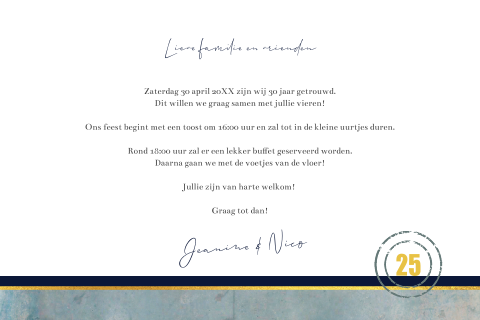 Lieve familie en vrienden
Zaterdag 30 april 20XX zijn wij 30 jaar getrouwd.
Dit willen we graag samen met jullie vieren!
Ons feest begint met een toost om 16:00 uur en zal tot in de kleine uurtjes duren.
Rond 18:00 uur zal er een lekker buffet geserveerd worden.
Daarna gaan we met de voetjes van de vloer!
Jullie zijn van harte welkom!
Graag tot dan!
Jeanine & Nico
25